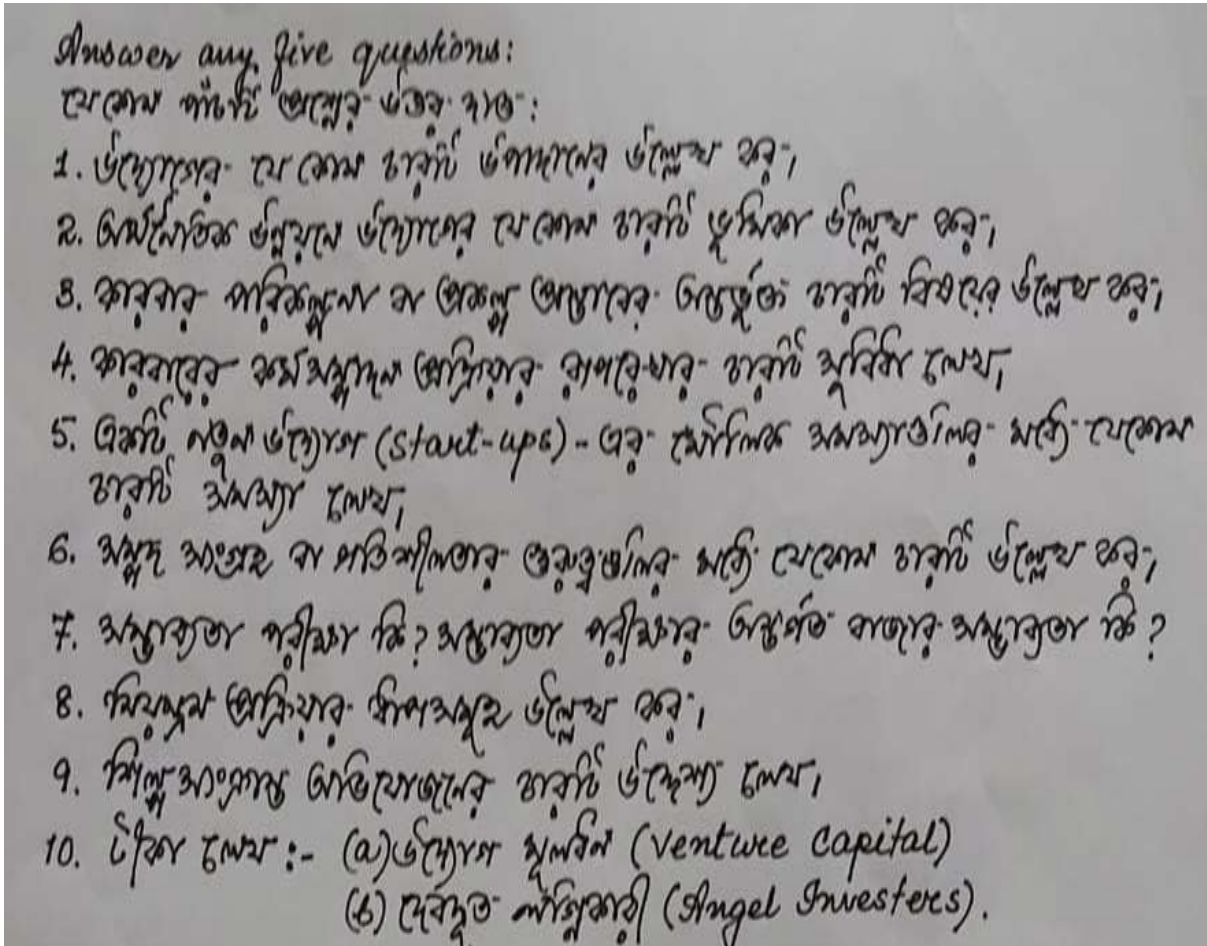 Answer any five questions:
যে কোন পাঁচটি প্রশ্নের উত্তর দাও:
1. উদ্যোগের যে কোন চারটি উপাদানের উল্লেখ কর।
2. অর্থনৈতিক উন্নয়নে উদ্যোগের যে কোন চারটি ভূমিকা উল্লেখ কর।
3. কারবার পরিকল্পনা বা প্রকল্প প্রস্তাবের অন্তর্ভূক্ত চারটি বিষয়ের উল্লেখ কর।
4. কারবারের কর্মসম্পাদন প্রক্রিয়ার রূপরেখার চারটি সুবিধা লেখ।
5. একটি নতুন উদ্যোগ (Start-ups) - এর মৌলিক সমস্যাগুলির মধ্যে যেকোন
চারটি সমস্যা লেখ।
6. সম্পদ সংগ্রহ বা গতিশীলতার গুরুত্বগুলির মধ্যে যেকোন চারটি উল্লেখ কর।
7. সম্ভাব্যতা পরীক্ষা কি? সম্ভাব্যতা পরীক্ষার অন্তর্গত বাজার সম্ভাব্যতা কি?
8. নিয়ন্ত্রন প্রক্রিয়ার ধাপসমূহ উল্লেখ কর।
9. শিল্পসংক্রান্ত অভিযোজনের চারটি উদ্দেশ্য লেখ।
10. টীকা লেখ :- (a) উদ্যোগ মূলধন (Venture Capital)
(b) দেবদূত লগ্নিকারী (Angel Investers).